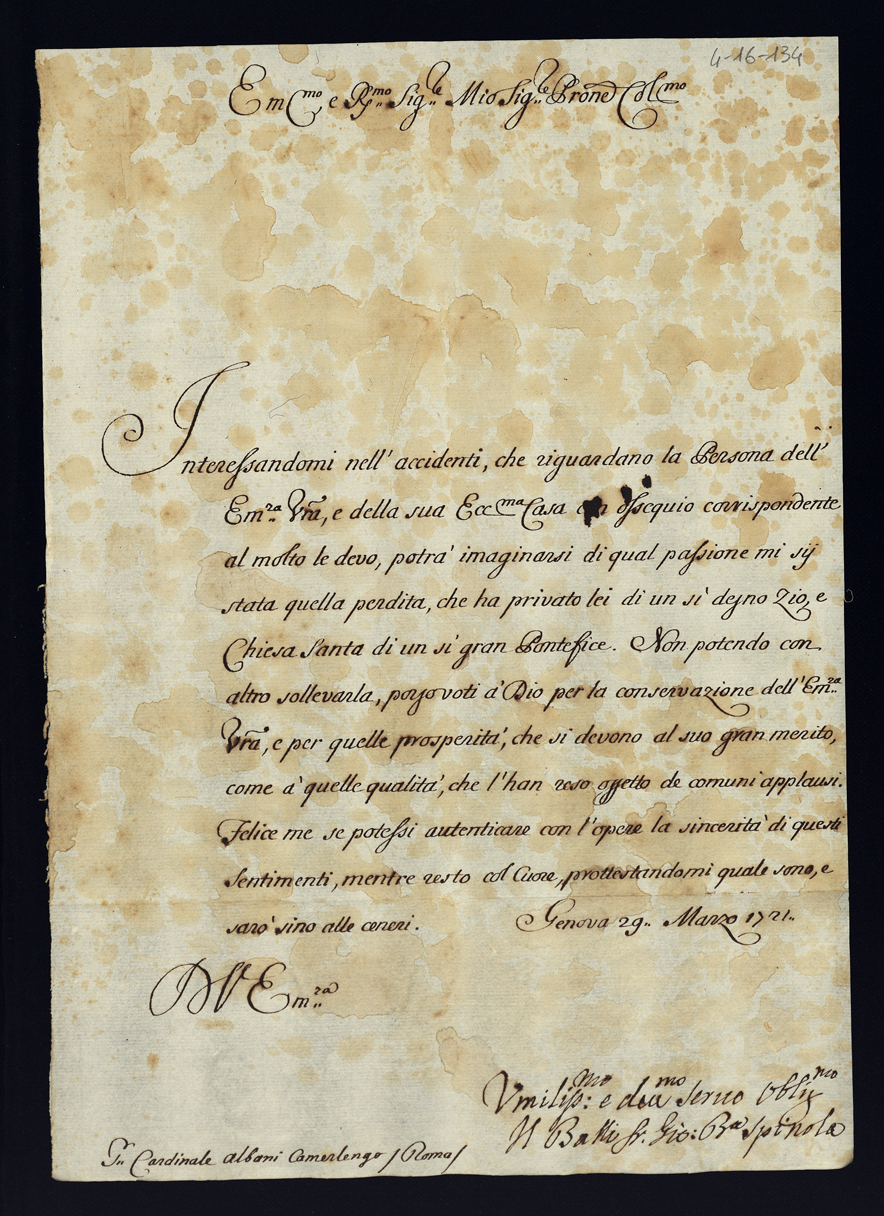 4-16-134
Em̃mo e Rp̃mo Sig.re Mio Sig.re Prone Colmo
Interessandomi nell' accidenti, che riguardano la Persona dell'
Em.za Vrã, e della sua Eccma Casa con ossequio corrispondente
al molto le devo, potrà imaginarsi di qual passione mi sij
stata quella perdita, che ha privato lei di un sì degno Zio, e
Chiesa Santa di un sì gran Pontefice. Non potendo con
altro sollevarla, porgo voti à Dio per la conservazione dell' Em.za
Vrã, e per quelle prosperità, che si devono al suo gran merito,
come à quelle qualità, che l'han reso oggetto de comuni applausi.
Felice me se potessi autenticare con l'opere la sincerità di questi
sentimenti, mentre resto col Cuore, prottestandomi quale sono, e
sarò sino alle ceneri. Genova 29.. Marzo 1721..
D V Em.za
Vmiliss:mo e deumo seruo Oblig.mo
Il Bali fr: Gio: Bta Spinola
Sr. Cardinale Albani Camerlengo / Roma /